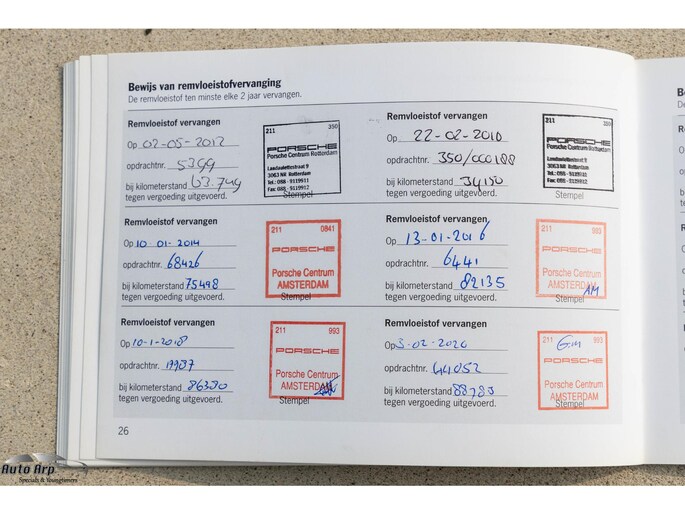 Bewijs van remvloeistofvervanging
De remvloeistof ten minste elke 2 jaar vervangen.
Remvloeistof vervangen
Op 02-05-2012
opdrachtnr. 5399
bij kilometerstand 63.744
tegen vergoeding uitgevoerd.
211 350
PORSCHE
Porsche Centrum Rotterdam
3063 NB Rotterdam
Stempel
Remvloeistof vervangen
Op 22-02-2010
opdrachtnr. 350/000188
bij kilometerstand 34150
tegen vergoeding uitgevoerd.
211 350
PORSCHE
Porsche Centrum Rotterdam
3063 NB Rotterdam
Stempel
Remvloeistof vervangen
Op 10 01-2014
opdrachtnr. 68426
bij kilometerstand 75498
tegen vergoeding uitgevoerd.
211 0841
PORSCHE
Porsche Centrum
AMSTERDAM
Stempel
Remvloeistof vervangen
Op 13-01-2016
opdrachtnr. 6441
bij kilometerstand 82135
tegen vergoeding uitgevoerd.
211 993
PORSCHE
Porsche Centrum
AMSTERDAM
AM
Stempel
Remvloeistof vervangen
Op 10-1-2018
opdrachtnr.
bij kilometerstand 86380
tegen vergoeding uitgevoerd.
211 993
PORSCHE
Porsche Centrum
AMSTERDAM
Stempel
Remvloeistof vervangen
Op 3-02-2020
opdrachtnr. 44052
bij kilometerstand 88783
tegen vergoeding uitgevoerd.
211 993
PORSCHE
Porsche Centrum
AMSTERDAM
Stempel
26
Auto Arp
Specials & Youngtimers